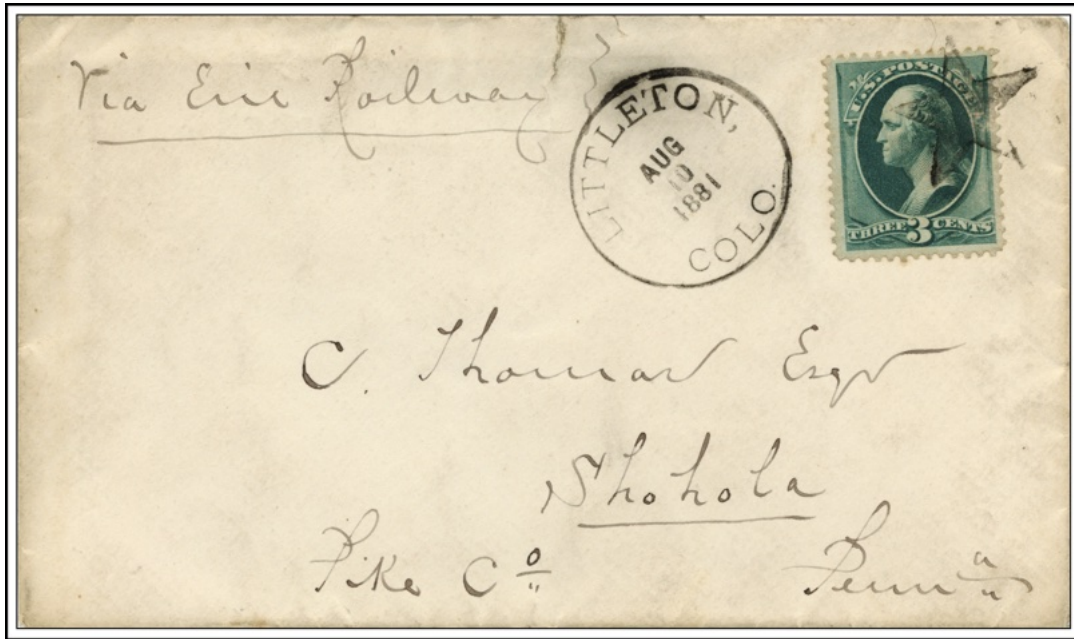 Via Erie Railway
LITTLETON,
AUG
10
1881
COLO.
U.S. POSTAGE
THREE 3 CENTS
C. Thomas Esqr
Shohola
Pike Co
Penna